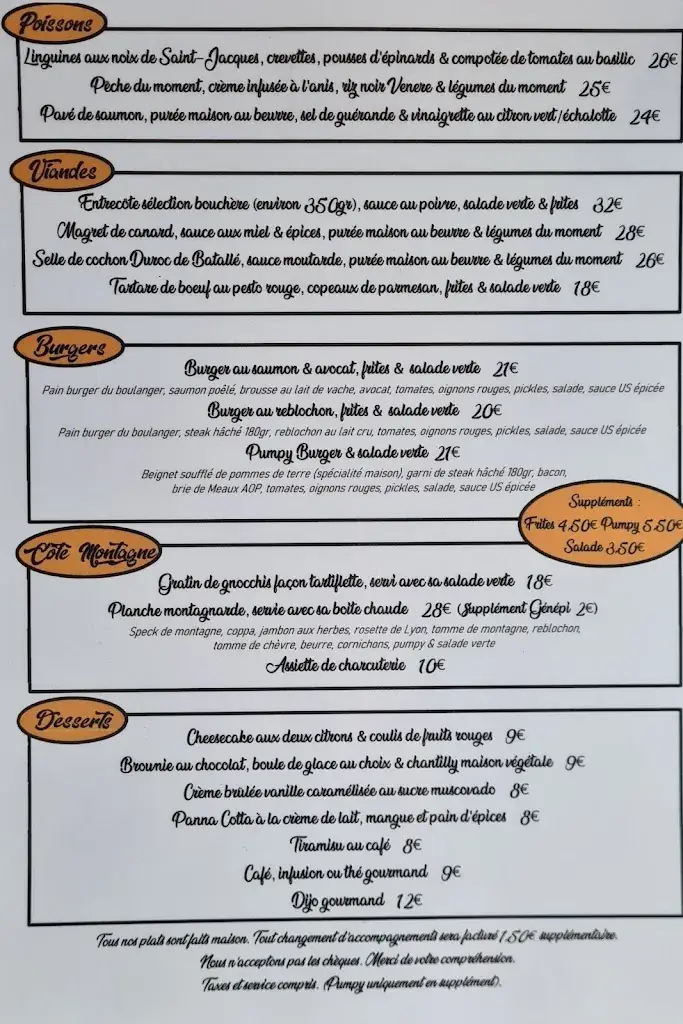 Poissons
Linguines aux noix de Saint-Jacques, crevettes, pousses d'épinards & compotée de tomates au basilic 26€
Pêche du moment, crème infusée à l'anis, riz noir Venere & légumes du moment 25€
Pavé de saumon, purée maison au beurre, sel de guérande & vinaigrette au citron vert/échalotte 24€
Viandes
Entrecôte sélection bouchère (environ 350gr), sauce au poivre, salade verte & frites 32€
Magret de canard, sauce aux miel & épices, purée maison au beurre & légumes du moment 28€
Selle de cochon Duroc de Batallé, sauce moutarde, purée maison au beurre & légumes du moment 26€
Tartare de boeuf au pesto rouge, copeaux de parmesan, frites & salade verte 18€
Burgers
Burger au saumon & avocat, frites & salade verte 21€
Pain burger du boulanger, saumon poêlé, brousse au lait de vache, avocat, tomates, oignons rouges, pickles, salade, sauce US épicée
Burger au reblochon, frites & salade verte 20€
Pain burger du boulanger, steak hâché 180gr, reblochon au lait cru, tomates, oignons rouges, pickles, salade, sauce US épicée
Pumpy Burger & salade verte 21€
Beignet soufflé de pommes de terre (spécialité maison), garni de steak hâché 180gr, bacon,
brie de Meaux AOP, tomates, oignons rouges, pickles, salade, sauce US épicée
Suppléments :
Frites 4.50€ Pumpy 5.50€
Salade 3.50€
Côté Montagne
Gratin de gnocchis façon tartiflette, servi avec sa salade verte 18€
Planche montagnarde, servie avec sa boîte chaude 28€ (Supplément Génépi 2€)
Speck de montagne, coppa, jambon aux herbes, rosette de Lyon, tomme de montagne, reblochon,
tomme de chèvre, beurre, cornichons, pumpy & salade verte
Assiette de charcuterie 10€
Desserts
Cheesecake aux deux citrons & coulis de fruits rouges 9€
Brownie au chocolat, boule de glace au choix & chantilly maison végétale 9€
Crème brûlée vanille caramélisée au sucre muscovado 8€
Panna Cotta à la crème de lait, mangue et pain d'épices 8€
Tiramisu au café 8€
Café, infusion ou thé gourmand 9€
Dijo gourmand 12€
Tous nos plats sont faits maison. Tout changement d'accompagnements sera facturé 1,50€ supplémentaire.
Nous n'acceptons pas les chèques. Merci de votre compréhension.
Taxes et service compris. (Pumpy uniquement en supplément).